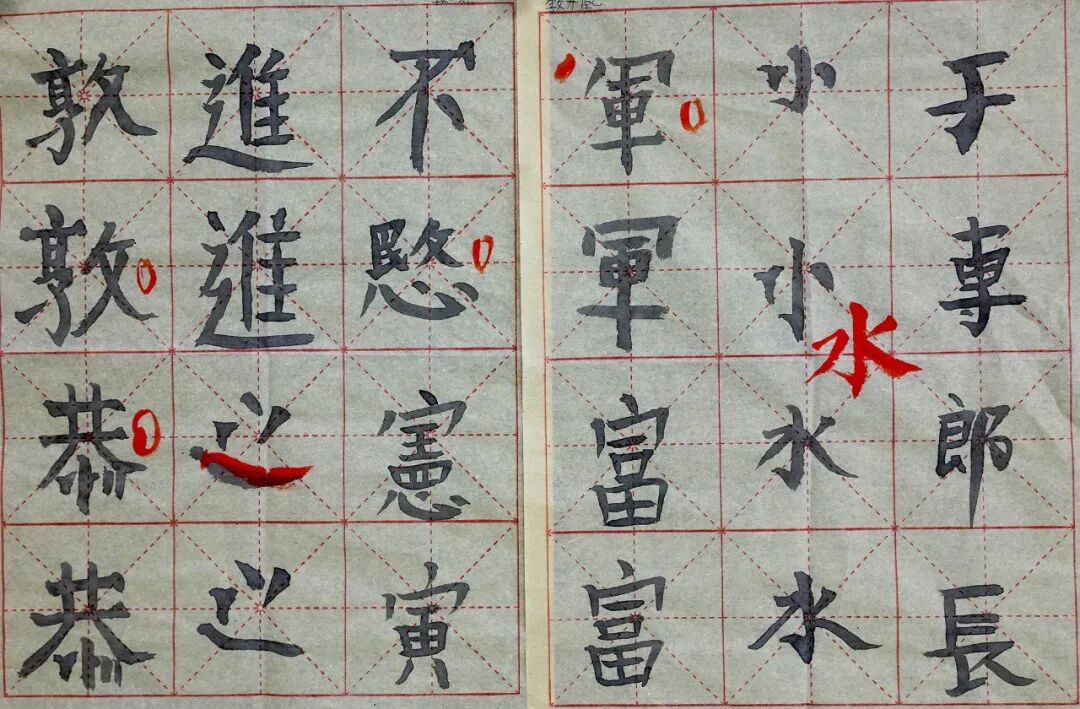 于専郎長
小小水水
水
軍軍富富
不愍憲寅
進進之之
敦敦恭恭